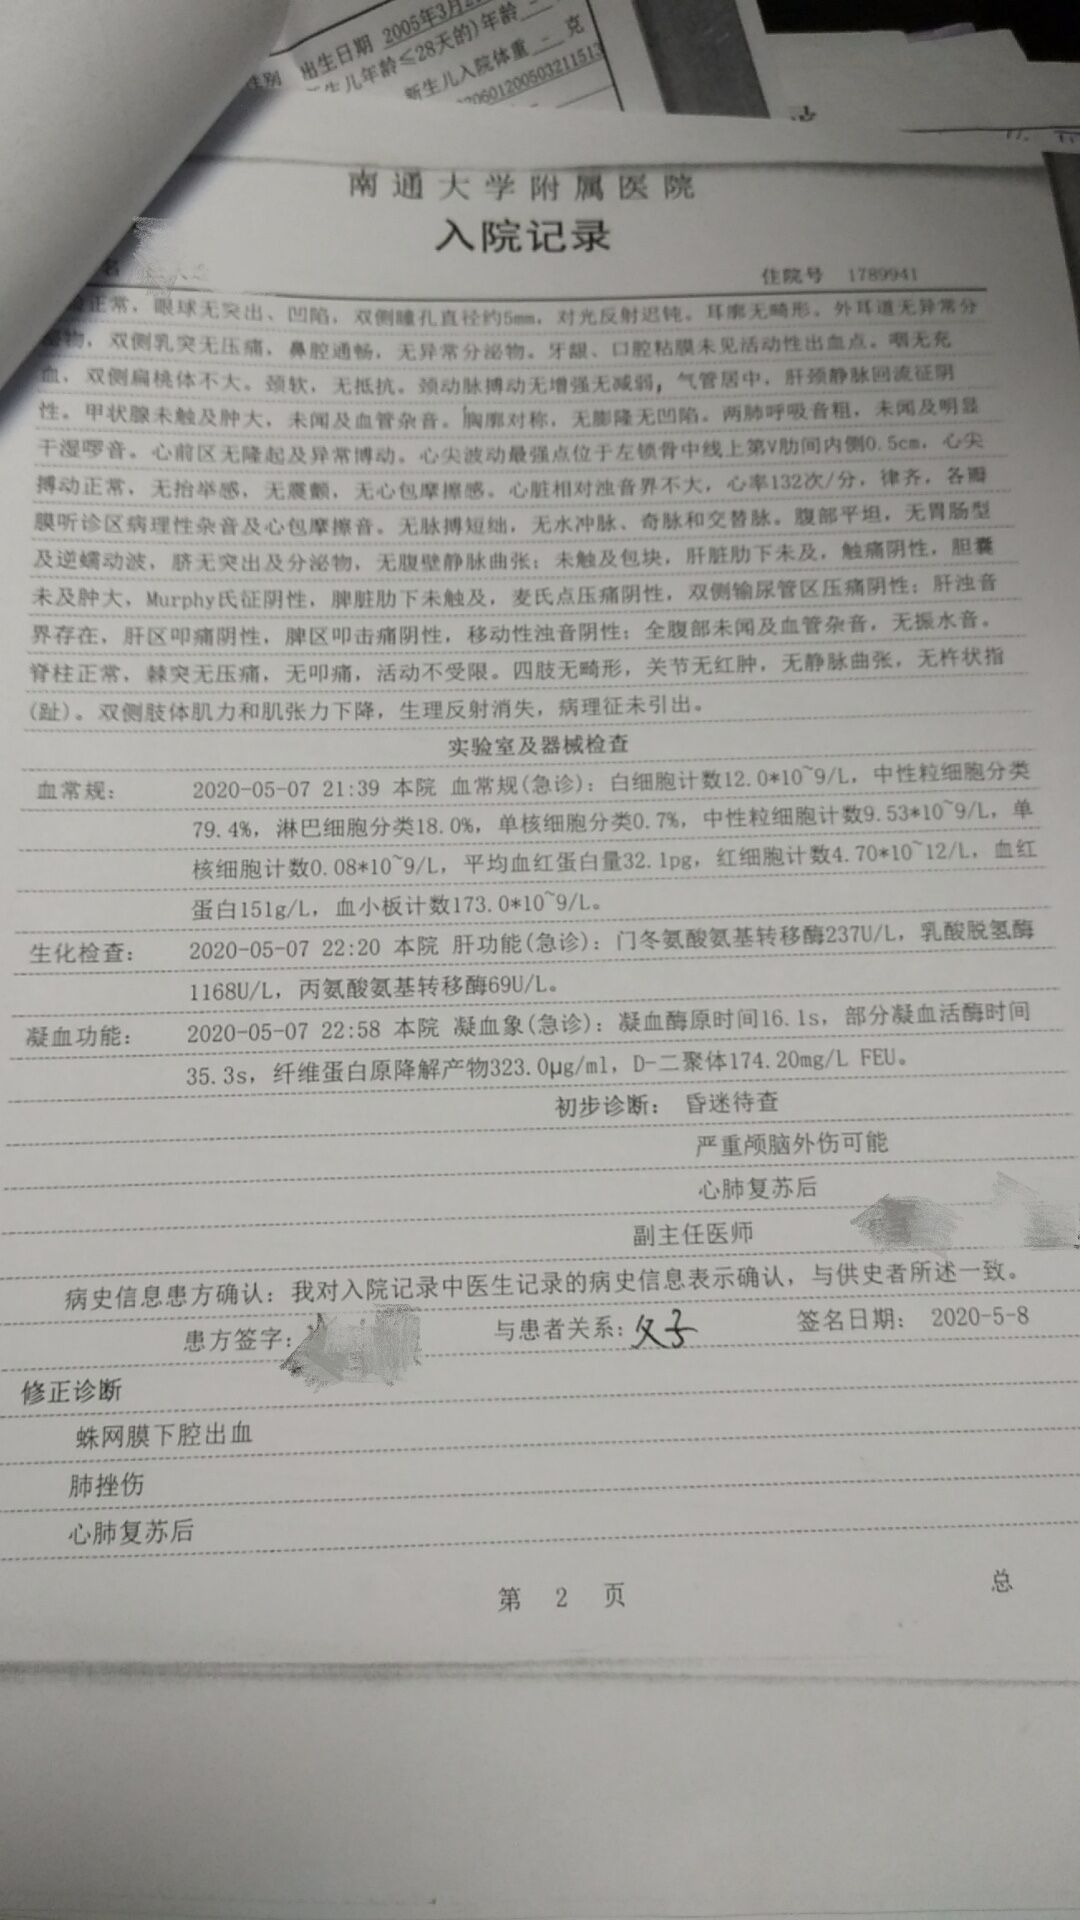 出生日期 2005年3月2
性别
生儿年龄≤28天的)年龄
新生儿入院体重 克
20601200503211513
南通大学附属医院
入院记录
名
住院号 1789941
正常，眼球无突出、凹陷，双侧瞳孔直径约5mm，对光反射迟钝。耳廓无畸形。外耳道无异常分
物，双侧乳突无压痛，鼻腔通畅，无异常分泌物。牙龈、口腔粘膜未见活动性出血点。咽无充
血，双侧扁桃体不大。颈软，无抵抗。颈动脉搏动无增强无减弱，气管居中，肝颈静脉回流征阴
性。甲状腺未触及肿大，未闻及血管杂音。胸廓对称，无膨隆无凹陷。两肺呼吸音粗，未闻及明显
干湿啰音。心前区无隆起及异常搏动。心尖波动最强点位于左锁骨中线上第V肋间内侧0.5cm，心尖
搏动正常，无抬举感，无震颤，无心包摩擦感。心脏相对浊音界不大，心率132次/分，律齐，各瓣
膜听诊区病理性杂音及心包摩擦音。无脉搏短绌，无水冲脉、奇脉和交替脉。腹部平坦，无胃肠型
及逆蠕动波，脐无突出及分泌物，无腹壁静脉曲张；未触及包块，肝脏肋下未及，触痛阴性，胆囊
未及肿大，Murphy氏征阴性，脾脏肋下未触及，麦氏点压痛阴性，双侧输尿管区压痛阴性；肝浊音
界存在，肝区叩痛阴性，脾区叩击痛阴性，移动性浊音阴性；全腹部未闻及血管杂音，无振水音。
脊柱正常，棘突无压痛，无叩痛，活动不受限。四肢无畸形，关节无红肿，无静脉曲张，无杵状指
(趾)。双侧肢体肌力和肌张力下降，生理反射消失，病理征未引出。
实验室及器械检查
血常规： 2020-05-07 21:39 本院 血常规(急诊)：白细胞计数12.0*10~9/L，中性粒细胞分类
79.4%，淋巴细胞分类18.0%，单核细胞分类0.7%，中性粒细胞计数9.53*10~9/L，单
核细胞计数0.08*10~9/L，平均血红蛋白量32.1pg，红细胞计数4.70*10~12/L，血红
蛋白151g/L，血小板计数173.0*10~9/L。
生化检查： 2020-05-07 22:20 本院 肝功能(急诊)：门冬氨酸氨基转移酶237U/L，乳酸脱氢酶
1168U/L，丙氨酸氨基转移酶69U/L。
凝血功能： 2020-05-07 22:58 本院 凝血象(急诊)：凝血酶原时间16.1s，部分凝血活酶时间
35.3s，纤维蛋白原降解产物323.0μg/ml，D-二聚体174.20mg/L FEU。
初步诊断： 昏迷待查
严重颅脑外伤可能
心肺复苏后
副主任医师
病史信息患方确认：我对入院记录中医生记录的病史信息表示确认，与供史者所述一致。
患方签字： 与患者关系：父子 签名日期： 2020-5-8
修正诊断
蛛网膜下腔出血
肺挫伤
心肺复苏后
第 2 页
总